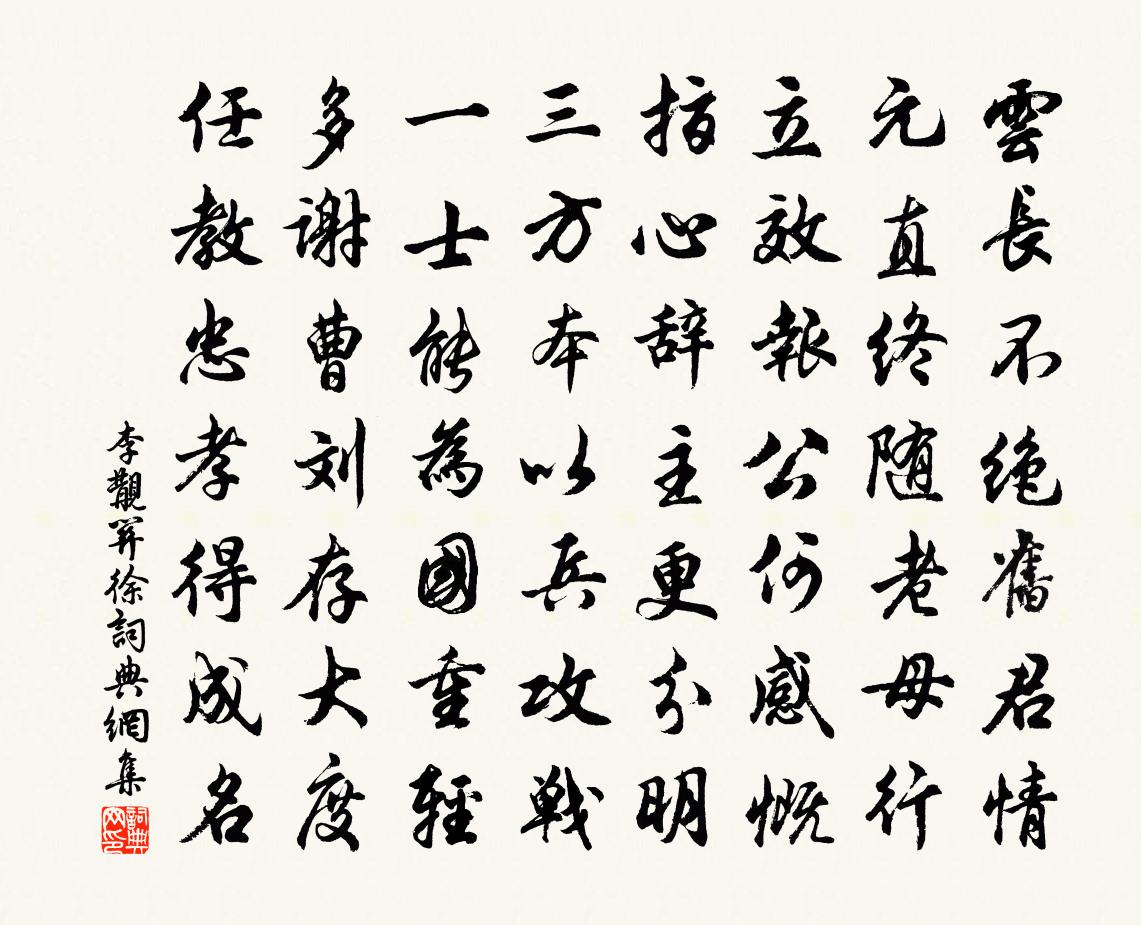 雲長不絶舊君情
元直終随老母行
立效報公何感慨
指心辞主更分明
三方本以兵攻戦
一士能為國重輕
多謝曹刘存大度
任教忠孝得成名
李觀 徐詞典網集
詞典網印